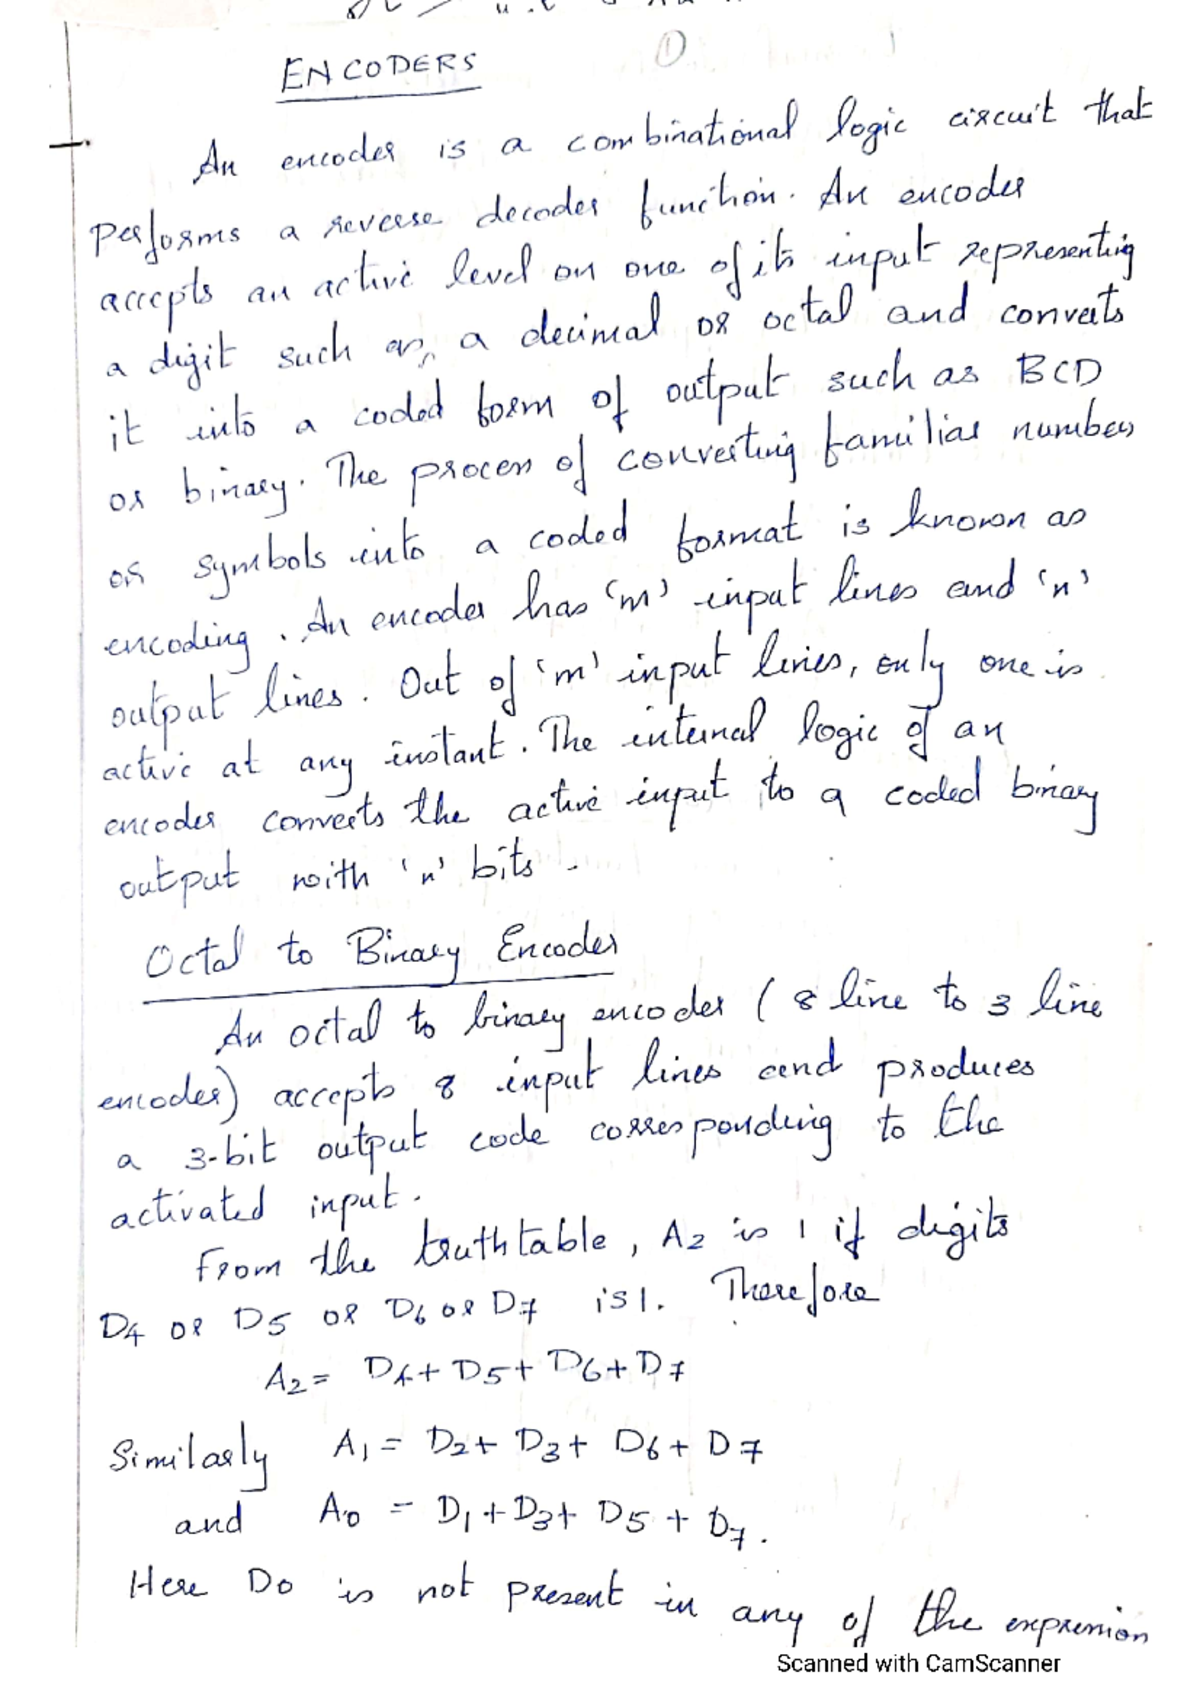 ENCODERS
①
An encoder is a combinational logic circuit that
performs a reverse decoder function. An encoder
accepts an active level on one of its input representing
a digit such as, a decimal or octal and converts
it into a coded form of output such as BCD
or binary. The process of converting familiar numbers
or symbols into a coded format is known as
encoding. An encoder has 'm' input lines and 'n'
output lines. Out of 'm' input lines, only one is
active at any instant. The internal logic of an
encoder converts the active input to a coded binary
output with 'n' bits.
Octal to Binary Encoder
An octal to binary encoder (8 line to 3 line
encoder) accepts 8 input lines and produces
a 3-bit output code corresponding to the
activated input.
From the truthtable, A2 is 1 if digits
D4 or D5 or D6 or D7 is 1. Therefore
A2 = D4 + D5 + D6 + D7
Similarly A1 = D2 + D3 + D6 + D7
and A0 = D1 + D3 + D5 + D7.
Here D0 is not present in any of the expression
Scanned with CamScanner